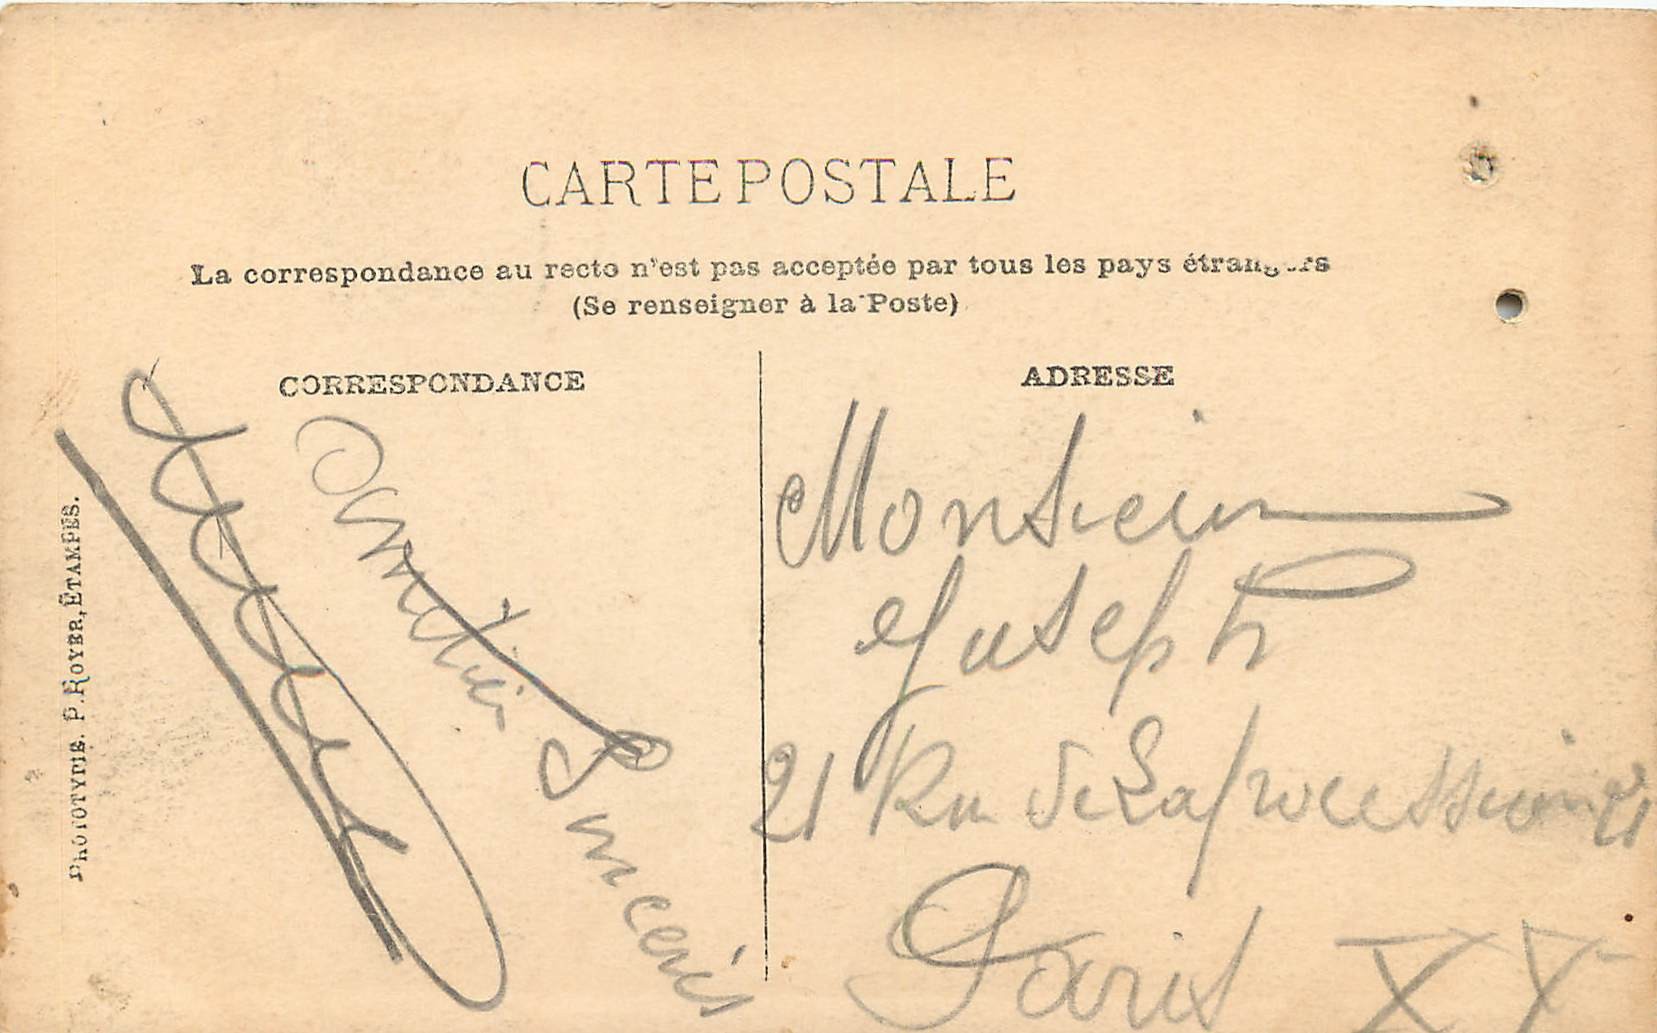 CARTE POSTALE
La correspondance au recto n'est pas acceptée par tous les pays étrangers
(Se renseigner à la Poste)
CORRESPONDANCE
ADRESSE
Amitiés
Sincères
Monsieur
Joseph
21 Rue de La Procession 21
Paris XV
PHOTOTYPIE. P. ROYER, ÉTAMPES.